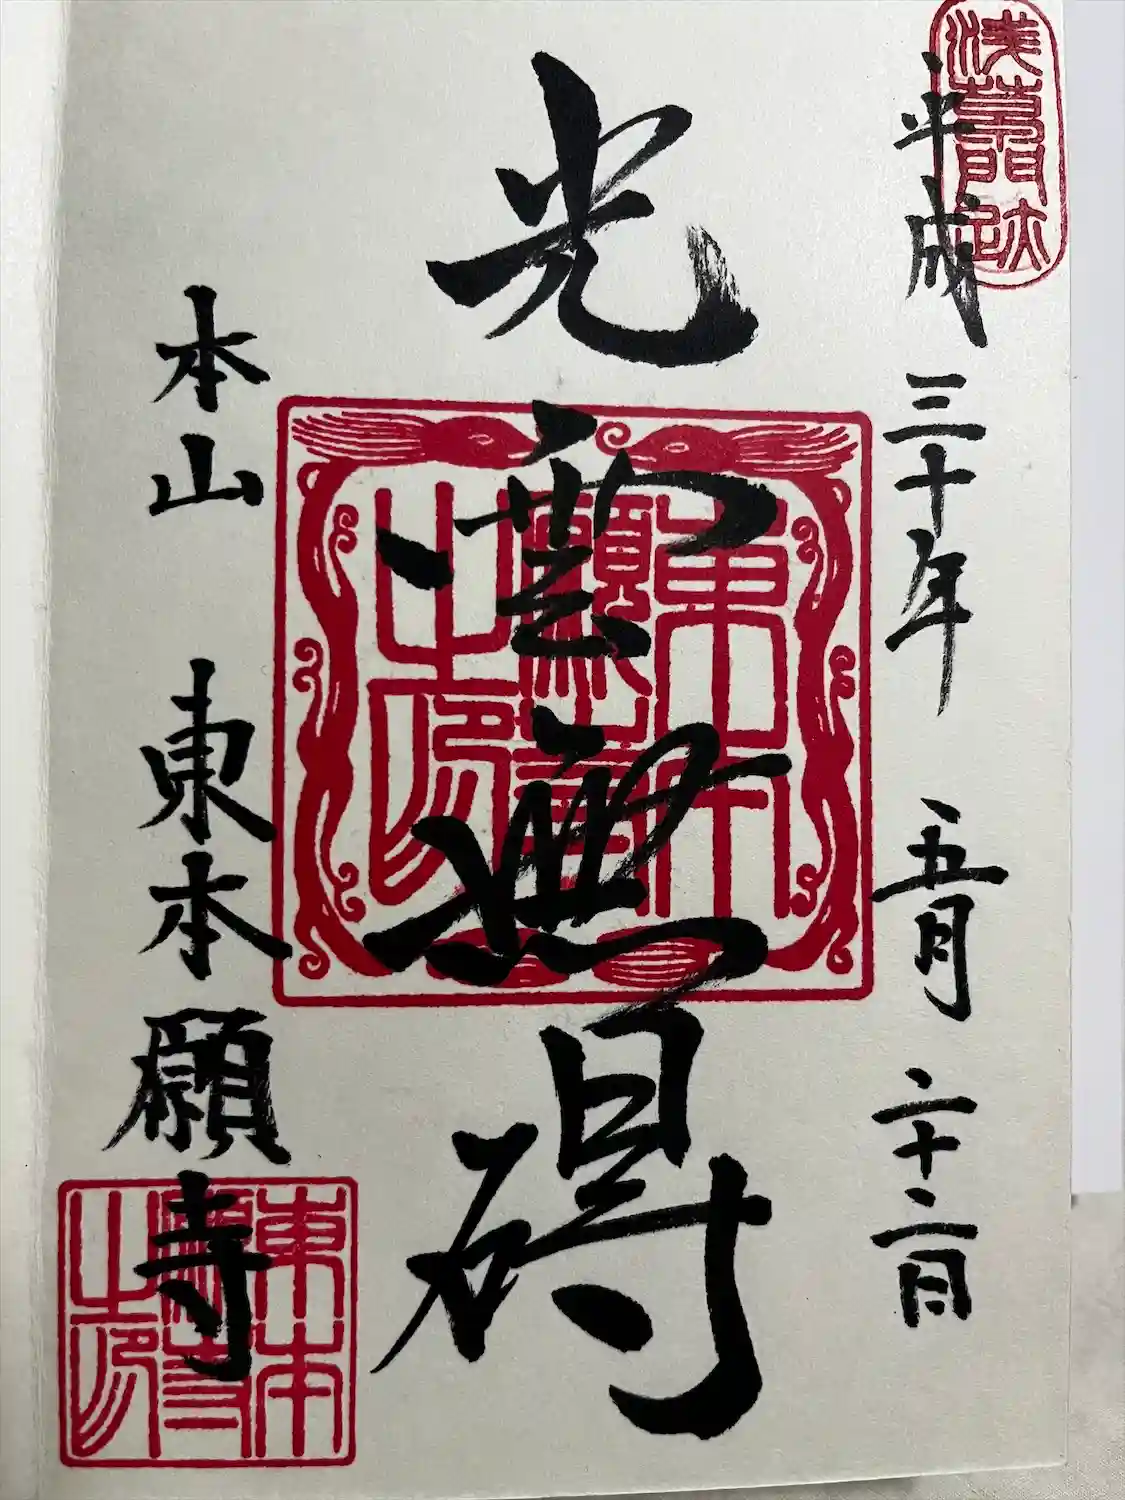 淺草門跡
平成三十年 五月 二十二日
光雲無碍
東本
願寺
之印
本山 東本願寺
東本
願寺
之印